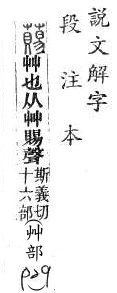 說文解字
段注本
艸也从艸賜聲
斯義切
十六部
(艸部
P29